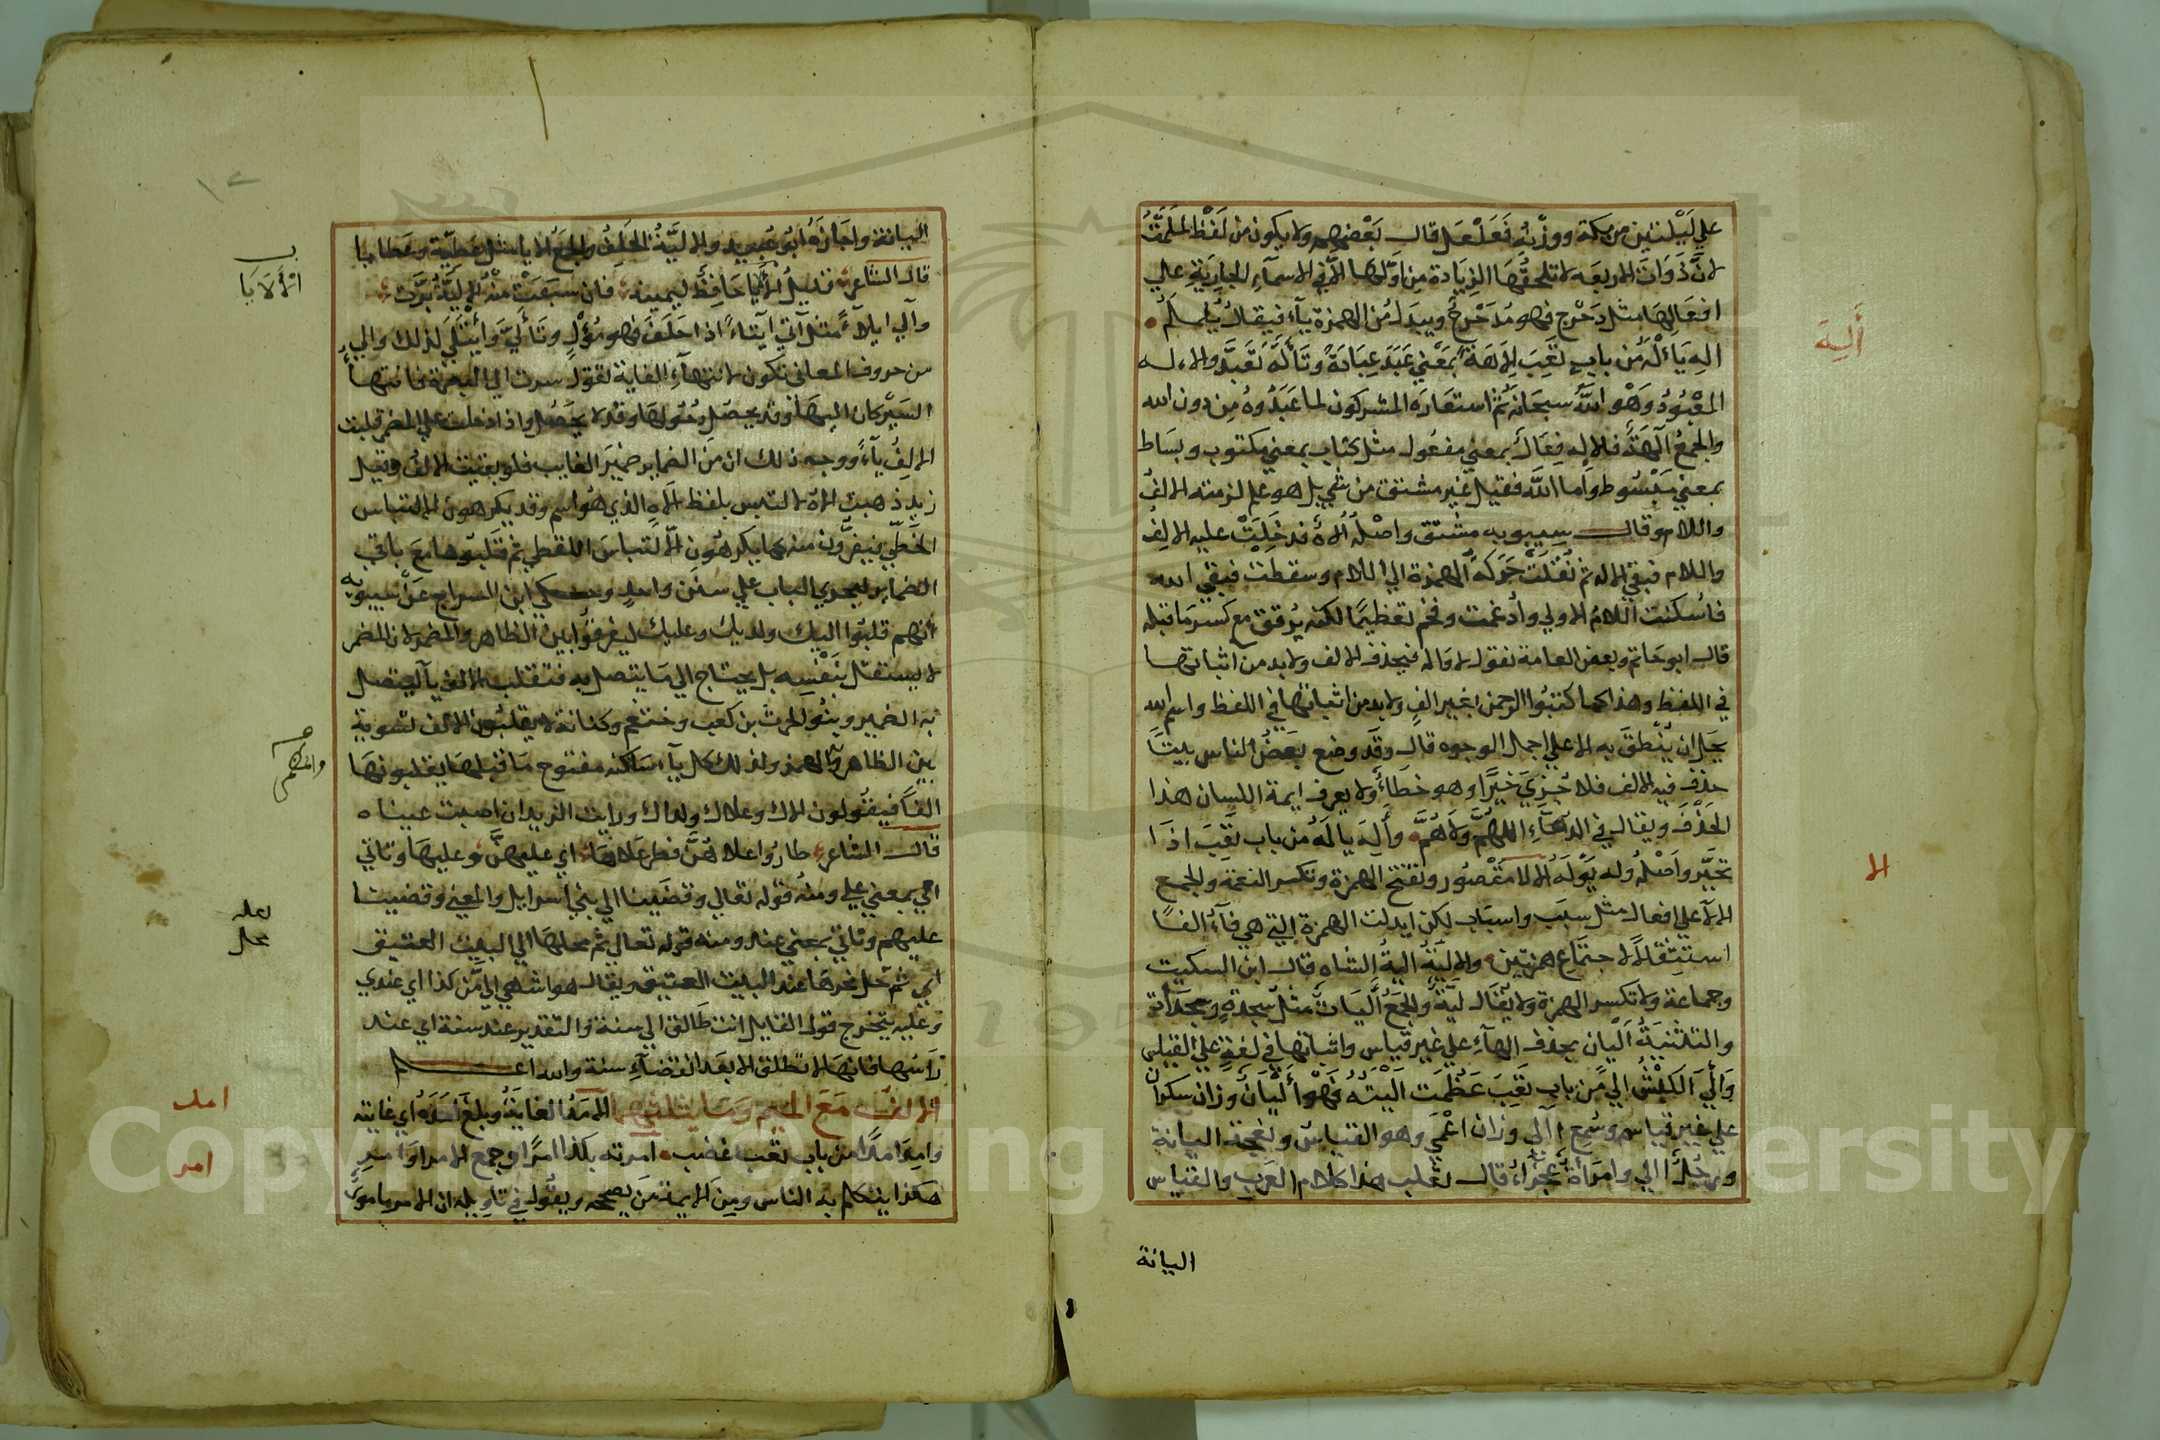 علي ليلتين من مكة ووزنه فعلعل قال بعضهم ولا يكون من لفظ لملمت
لان ذوات الاربعه لا تلحقها الزيادة من اولها الا في الاسماء الجارية علي
افعالها مثل دحرج فهو مدحرج ويبدل من الهمزة ياء فيقال يلملم
أله
اله يأله من باب تعب الاهة بمعني عبد عبادة وتاله تعبد والاله
المعبود وهو الله سبحانه ثم استعاره المشركون لما عبدوه من دون الله
والجمع آلهة فالاله فعال بمعني مفعول مثل كتاب بمعني مكتوب وبساط
بمعني مبسوط واما الله فقيل غير مشتق من شي بل هو علم لزمته الالف
واللام وقال سيبويه مشتق واصله الاه فدخلت عليه الالف
واللام فبقي الاله ثم نقلت حركة الهمزة الي اللام وسقطت فبقي الله
فاسكنت اللام الاولي وادغمت وفخم تعظيما لكنه يرقق مع كسر ما قبله
قال ابو حاتم وبعض العامة تقول لا والله فيحذف الالف ولا بد من اثباتها
في اللفظ وهذا كما كتبوا الرحمن بغير الف ولا بد من اثباتها في اللفظ واسم الله
يجل ان ينطق به الا علي اجمل الوجوه قال وقد وضع بعض الناس بيتا
حذف فيه الالف فلا جزي خيرا وهو خطأ ولا يعرف ايمة اللسان هذا
الحذف ويقال في الدعاء اللهم ولاهم واله ياله من باب تعب اذا
الا
تحير واصله وله يوله الالا مقصور وتفتح الهمزة وتكسر النعمة والجمع
الالآ علي افعال مثل سبب واسباب لكن ابدلت الهمزة التي هي فاء الفا
استثقالا لاجتماع همزتين والالية الية الشاه قال ابن السكيت
وجماعة ولا تكسر الهمزة ولا يقال لية والجمع أليات مثل سجدة وسجدات
والتثنية أليان بحذف الهاء علي غير قياس واثباتها في لغة علي القياس
وألي الكبش الي من باب تعب عظمت أليته فهو أليان وزان سكران
علي غير قياس وسمع آلي وزان اعمي وهو القياس ونعجة اليانة
ورجل الي وامراة عجزاء قال ثعلب هذا كلام العرب والقياس
اليانة
اليانة واجازه ابو عبيد والالية الحلف والجمع الايا مثل عطية وعطايا
الألايا
قال الشاعر قليل الألايا حافظ ليمينه فان سبقت منه الالية برت
وآلي ايلاء مثل آتي ايتاء اذا حلف فهو مؤل وتألي وايتلي كذلك والي
من حروف المعاني تكون لانتهاء الغاية تقول سرت الي البصرة فانتهاء
السير كان اليها وقد يحصل دخولها وقد لا يحصل واذا دخلت علي المضمر قلبت
الالف ياء ووجه ذلك ان من الضماير ضمير الغايب فلو بقيت الالف وقيل
زيد ذهبت الاه لالتبس بلفظ الاه الذي هو اسم وقد يكرهون الالتباس
الخطي فيفرون منه كما يكرهون الالتباس اللفظي ثم قلبوها مع باقي
الضماير ليجري الباب علي سنن واحد وحكي ابن السراج عن سيبويه
أنهم قلبوا اليك ولديك وعليك ليفرقوا بين الظاهر والمضمر لان المضمر
لا يستقل بنفسه بل يحتاج الي ما يتصل به فتقلب الالف ياء ليتصل
به الضمير وبنو الحرث بن كعب وخثعم وكنانة لا يقلبون الالف تسوية
بين الظاهر والمضمر وكذلك كل ياء ساكنه مفتوح ما قبلها يقلبونها
والمضمر
الفا فيقولون الاك وعلاك ولداك ورايت الزيدان اصبت عيناه
قال الشاعر طاروا علاهن فطر علاها اي عليهن وعليها وتاتي
الي بمعني علي ومنه قوله تعالي وقضينا الي بني اسرايل والمعني وقضينا
لعله
محل
عليهم وتاتي بمعني عند ومنه قوله تعالي ثم محلها الي البيت العتيق
اي ثم محل نحرها عند البيت العتيق ويقال هو اشهي الي من كذا اي عندي
وعليه يتخرج قول القايل انت طالق الي سنة والتقدير عند سنة اي عند
راسها فانها لا تطلق الا بعد انقضاء سنة والله اعلم
الالف مع الميم وما يثلثهما الامد الغاية وبلغ امده اي غايته
امد
وامد امدا من باب تعب غضب امرته بكذا امرا وجمع الامر اوامر
امر
هكذا يتكلم به الناس ومن الايمة من يصححه ويقول في تاويله ان الامر مامور